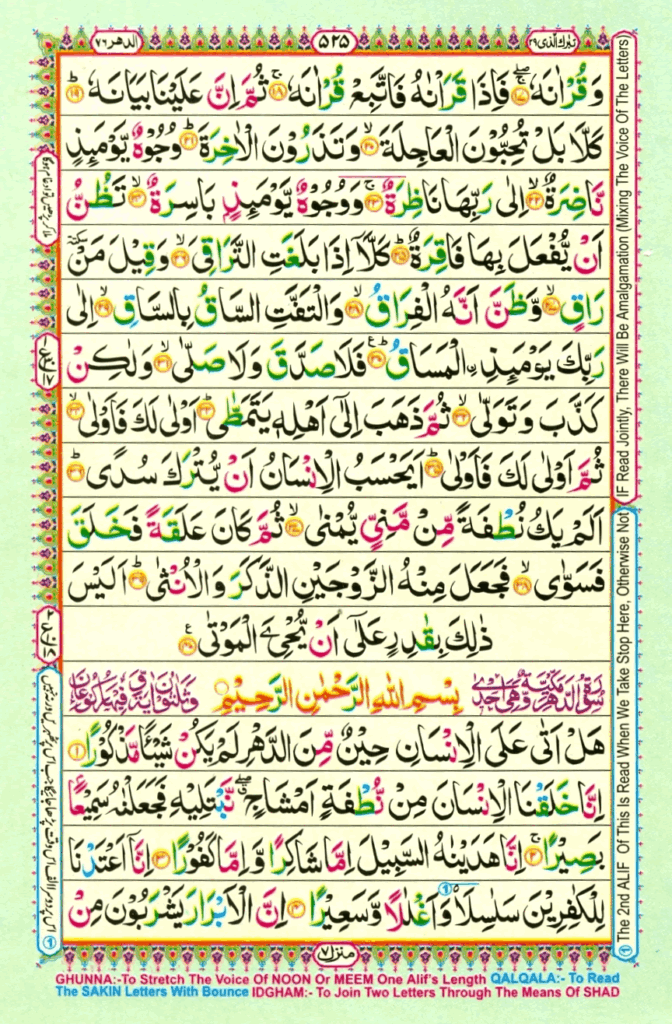 تبٰرك الذی ٢٩
٥٢٥
الدهر ٧٦
وَقُرْاٰنَهٗ ۚۖ‏ ﴿۱۷﴾ فَاِذَا قَرَاْنٰهُ فَاتَّبِعْ قُرْاٰنَهٗ ۚ‏ ﴿۱۸﴾ ثُمَّ اِنَّ عَلَيْنَا بَيَانَهٗ ؕ‏ ﴿۱۹﴾
كَلَّا بَلْ تُحِبُّوْنَ الْعَاجِلَةَ ۙ‏ ﴿۲۰﴾ وَتَذَرُوْنَ الْاٰخِرَةَ ؕ‏ ﴿۲۱﴾ وُجُوْهٌ يَّوْمَئِذٍ
نَّاضِرَةٌ ۙ‏ ﴿۲۲﴾ اِلٰى رَبِّهَا نَاظِرَةٌ ۚ‏ ﴿۲۳﴾ وَوُجُوْهٌ يَّوْمَئِذٍۭ بَاسِرَةٌ ۙ‏ ﴿۲۴﴾ تَظُنُّ
اَنْ يُّفْعَلَ بِهَا فَاقِرَةٌ ؕ‏ ﴿۲۵﴾ كَلَّاۤ اِذَا بَلَغَتِ التَّرَاقِىَ ۙ‏ ﴿۲۶﴾ وَقِيْلَ مَنْ
رَاقٍ ۙ‏ ﴿۲۷﴾ وَّظَنَّ اَنَّهُ الْفِرَاقُ ۙ‏ ﴿۲۸﴾ وَالْتَفَّتِ السَّاقُ بِالسَّاقِ ۙ‏ ﴿۲۹﴾ اِلٰى
رَبِّكَ يَوْمَئِذِ اۨلْمَسَاقُ ؕ‏ ﴿۳۰﴾ فَلَا صَدَّقَ وَلَا صَلّٰى ۙ‏ ﴿۳۱﴾ وَلٰكِنْ
كَذَّبَ وَتَوَلّٰى ۙ‏ ﴿۳۲﴾ ثُمَّ ذَهَبَ اِلٰٓى اَهْلِهٖ يَتَمَطّٰى ؕ‏ ﴿۳۳﴾ اَوْلٰى لَكَ فَاَوْلٰى ۙ‏ ﴿۳۴﴾
ثُمَّ اَوْلٰى لَكَ فَاَوْلٰى ؕ‏ ﴿۳۵﴾ اَيَحْسَبُ الْاِنْسَانُ اَنْ يُّتْرَكَ سُدًى ؕ‏ ﴿۳۶﴾
اَلَمْ يَكُ نُطْفَةً مِّنْ مَّنِىٍّ يُّمْنٰى ۙ‏ ﴿۳۷﴾ ثُمَّ كَانَ عَلَقَةً فَخَلَقَ
فَسَوّٰى ۙ‏ ﴿۳۸﴾ فَجَعَلَ مِنْهُ الزَّوْجَيْنِ الذَّكَرَ وَالْاُنْثٰى ؕ‏ ﴿۳۹﴾ اَلَيْسَ
ذٰلِكَ بِقٰدِرٍ عَلٰٓى اَنْ يُّحْیِۦَ الْمَوْتٰى ‏ ﴿۴۰﴾
بِسْمِ اللّٰهِ الرَّحْمٰنِ الرَّحِيْمِ
هَلْ اَتٰى عَلَى الْاِنْسَانِ حِيْنٌ مِّنَ الدَّهْرِ لَمْ يَكُنْ شَيْـًٔا مَّذْكُوْرًا ‏ ﴿۱﴾
اِنَّا خَلَقْنَا الْاِنْسَانَ مِنْ نُّطْفَةٍ اَمْشَاجٍ ۖۗ نَّبْتَلِيْهِ فَجَعَلْنٰهُ سَمِيْعًۢا
بَصِيْرًا ۚ‏ ﴿۲﴾ اِنَّا هَدَيْنٰهُ السَّبِيْلَ اِمَّا شَاكِرًا وَّاِمَّا كَفُوْرًا ‏ ﴿۳﴾ اِنَّاۤ اَعْتَدْنَا
لِلْكٰفِرِيْنَ سَلٰسِلَا۟ وَاَغْلٰلًا وَّسَعِيْرًا ‏ ﴿۴﴾ اِنَّ الْاَبْرَارَ يَشْرَبُوْنَ مِنْ
منزل ٧
IF Read Jointly, There Will Be Amalgamation (Mixing The Voice Of The Letters)
① The 2nd ALIF Of This Is Read When We Take Stop Here, Otherwise Not
GHUNNA:-To Stretch The Voice Of NOON Or MEEM One Alif's Length QALQALA:- To Read
The SAKIN Letters With Bounce IDGHAM:- To Join Two Letters Through The Means Of SHAD